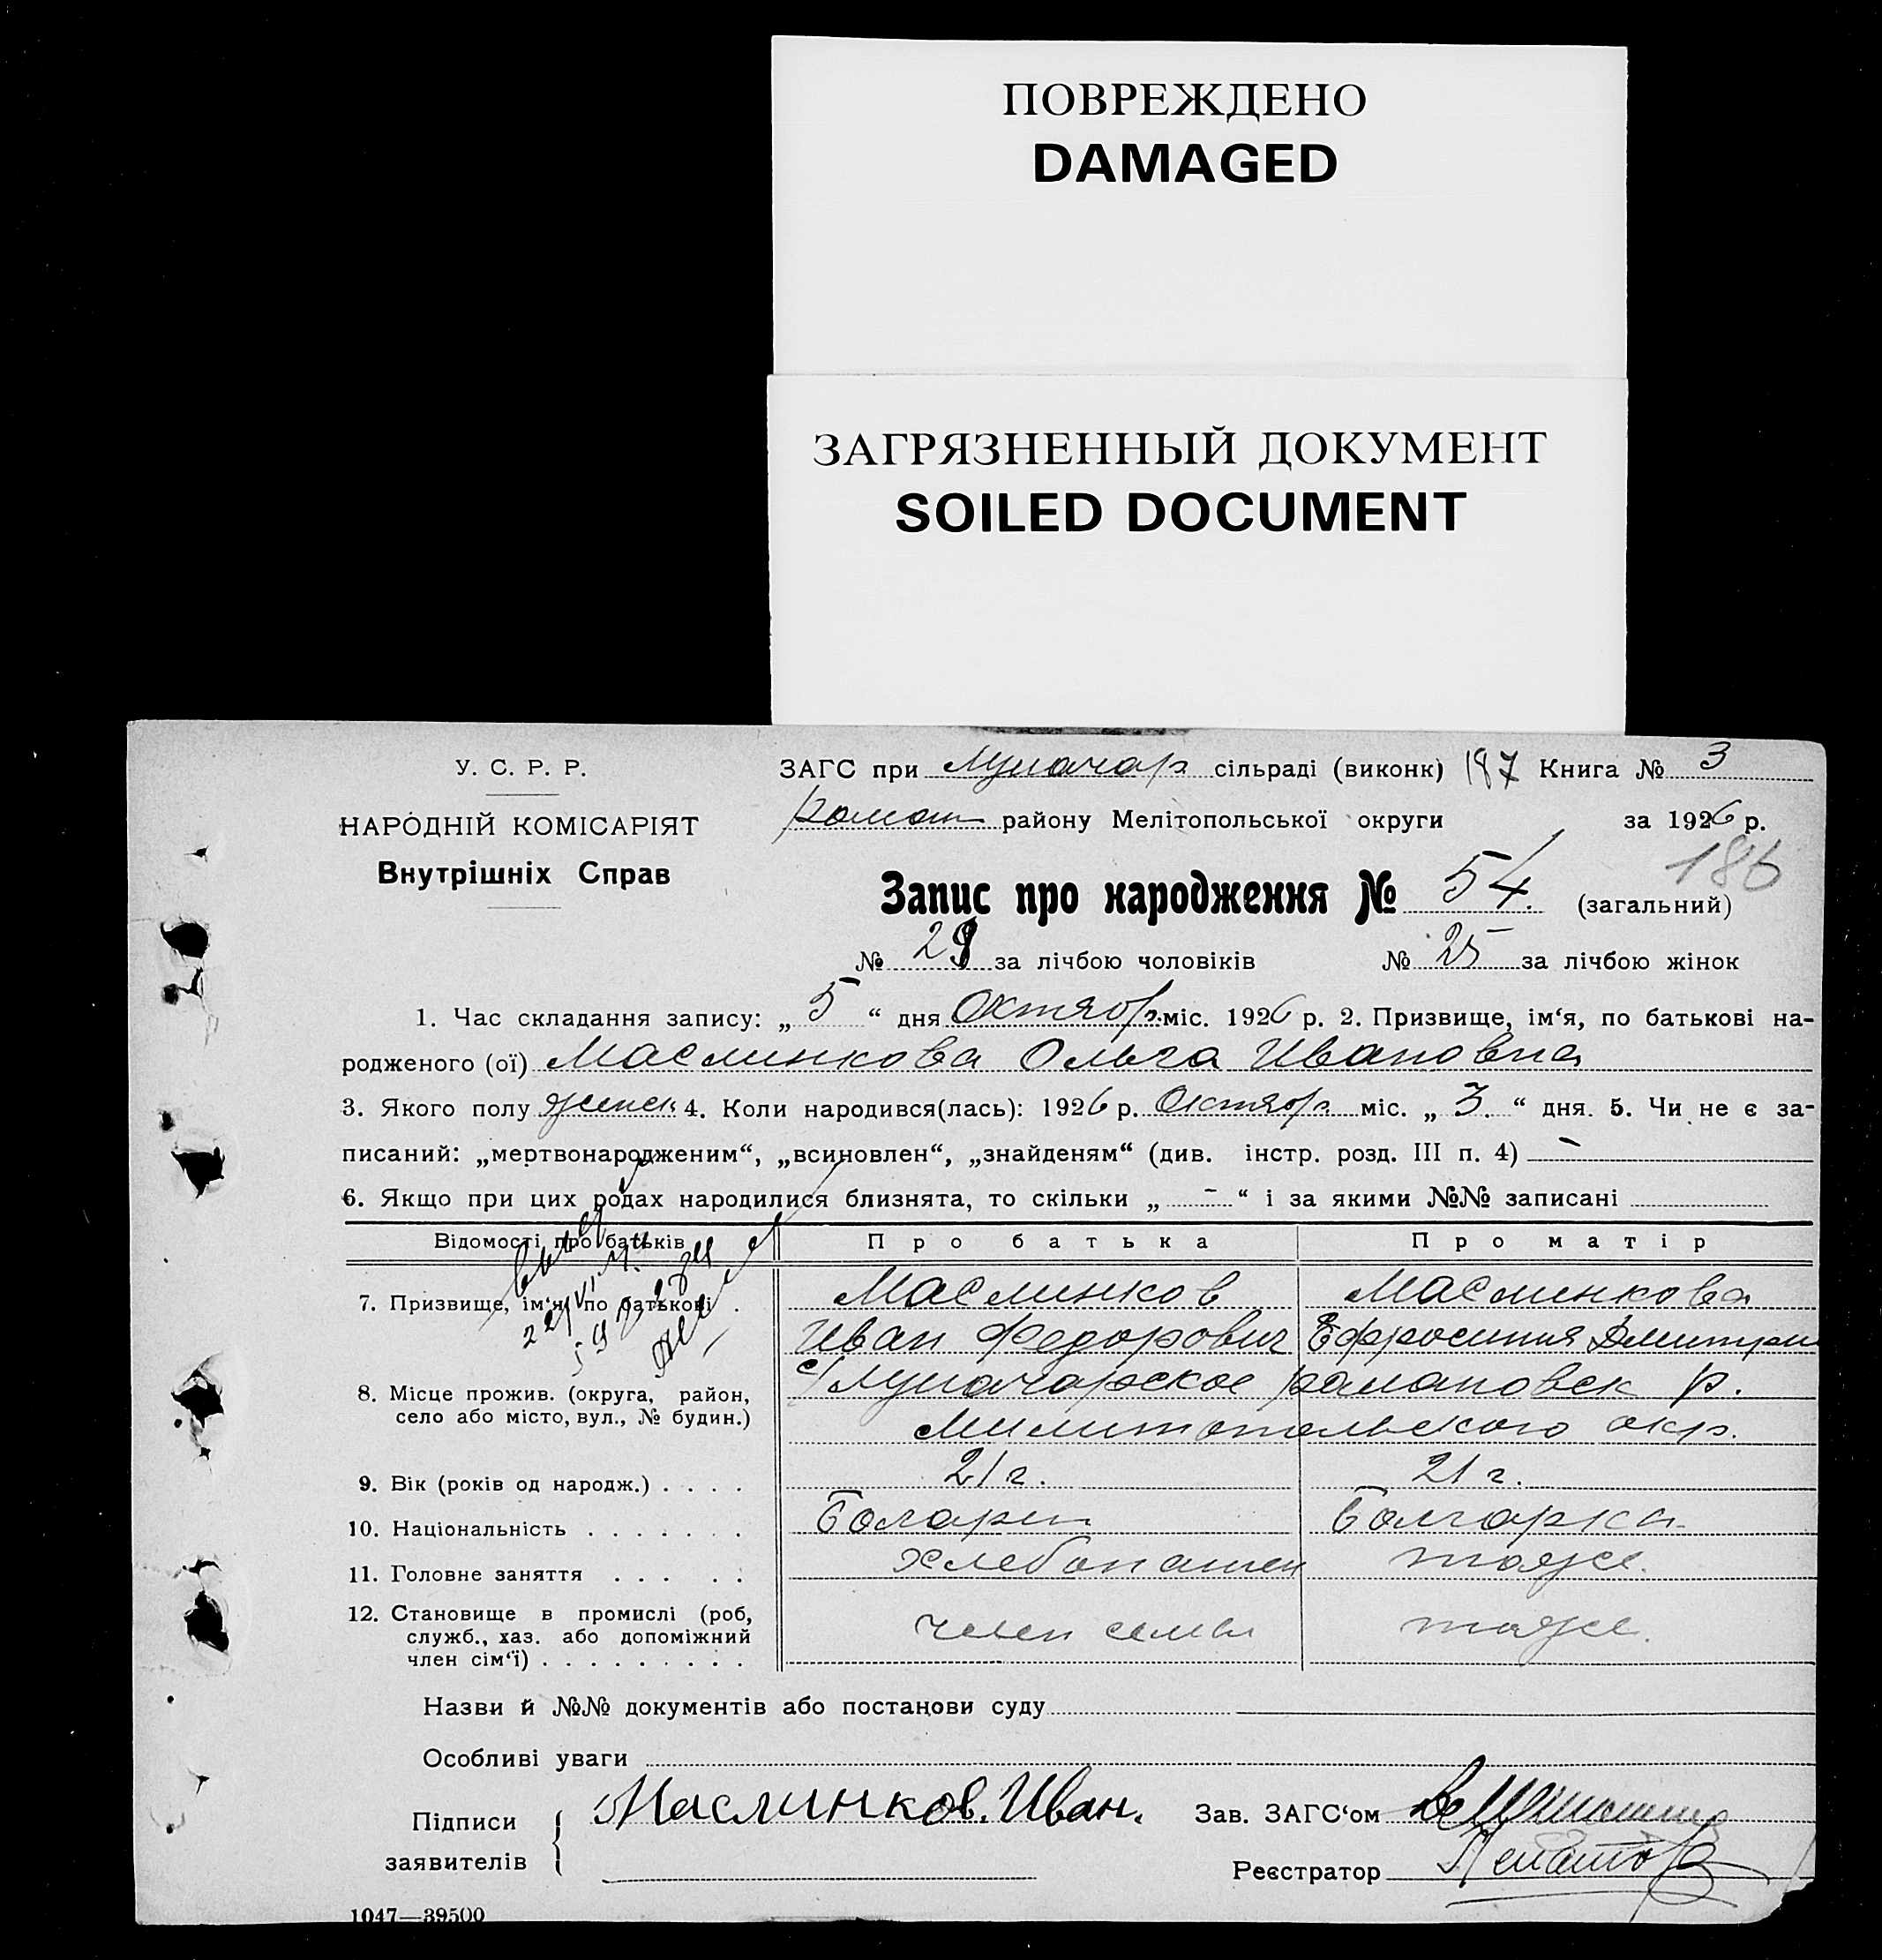 ПОВРЕЖДЕНО
DAMAGED
ЗАГРЯЗНЕННЫЙ ДОКУМЕНТ
SOILED DOCUMENT
У. С. Р. Р.
НАРОДНІЙ КОМІСАРІЯТ
Внутрішніх Справ
ЗАГС при Луначар сільраді (виконк) 187 Книга № 3
Роман району Мелітопольської округи за 1926 р.
186
Запис про народження № 54. (загальний)
№ 29 за лічбою чоловіків № 25 за лічбою жінок
1. Час складання запису: „5“ дня Октябр. міс. 1926 р. 2. Призвище, ім‘я, по батькові на-
родженого (ої) Маслинкова Ольга Ивановна
3. Якого полу женск. 4. Коли народився(лась): 1926 р. Октябр. міс. „3.“ дня. 5. Чи не є за-
писаний: „мертвонародженим“, „всиновлен“, „знайденям“ (див. інстр. розд. III п. 4) –
6. Якщо при цих родах народилися близнята, то скільки „–“ і за якими №№ записані
Відомості про батьків Про батька Про матір
7. Призвище, ім‘я, по батькові . Маслинков Маслинкова
Иван Федорович Ефросиния Дмитри
8. Місце прожив. (округа, район, с/Луначарское Романовск р.
село або місто, вул., № будин.) Милитопольского окр.
9. Вік (років од народж.) . . . . 21 г. 21 г.
10. Національність . . . . . . . Болгарин Болгарка
11. Головне заняття . . . . . хлебопашец тоже.
12. Становище в промислі (роб,
служб., хаз. або допоміжний член семьи тоже.
член сім‘ї) . . . . . . . . .
Назви й №№ документів або постанови суду
Особливі уваги
Підписи Маслинков. Иван. Зав. ЗАГС‘ом
заявителів Реєстратор
1047—39500